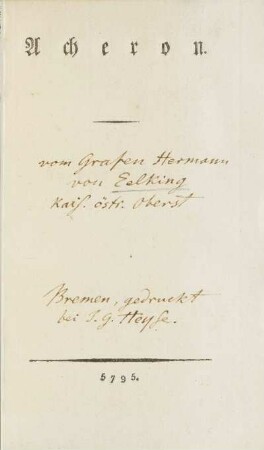 Acheron.
vom Grafen Hermann
von Eelking
Kais. östr. Oberst
Bremen, gedruckt
bei J. G. Heyse.
5795.